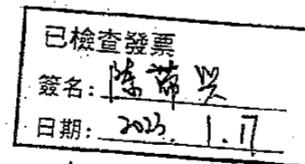 已檢查發票
簽名：陈苇兴
日期：2023. 1.17